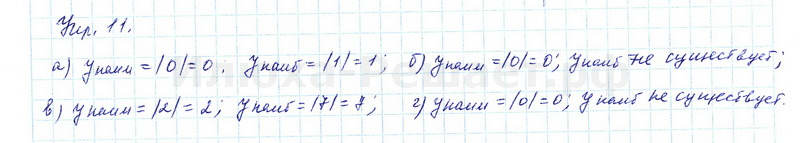 Упр. 11.
а) yнаим = |0| = 0, yнаиб = |1| = 1; б) yнаим = |0| = 0; yнаиб не существует;
в) yнаим = |2| = 2; yнаиб = |7| = 7; г) yнаим = |0| = 0; yнаиб не существует.